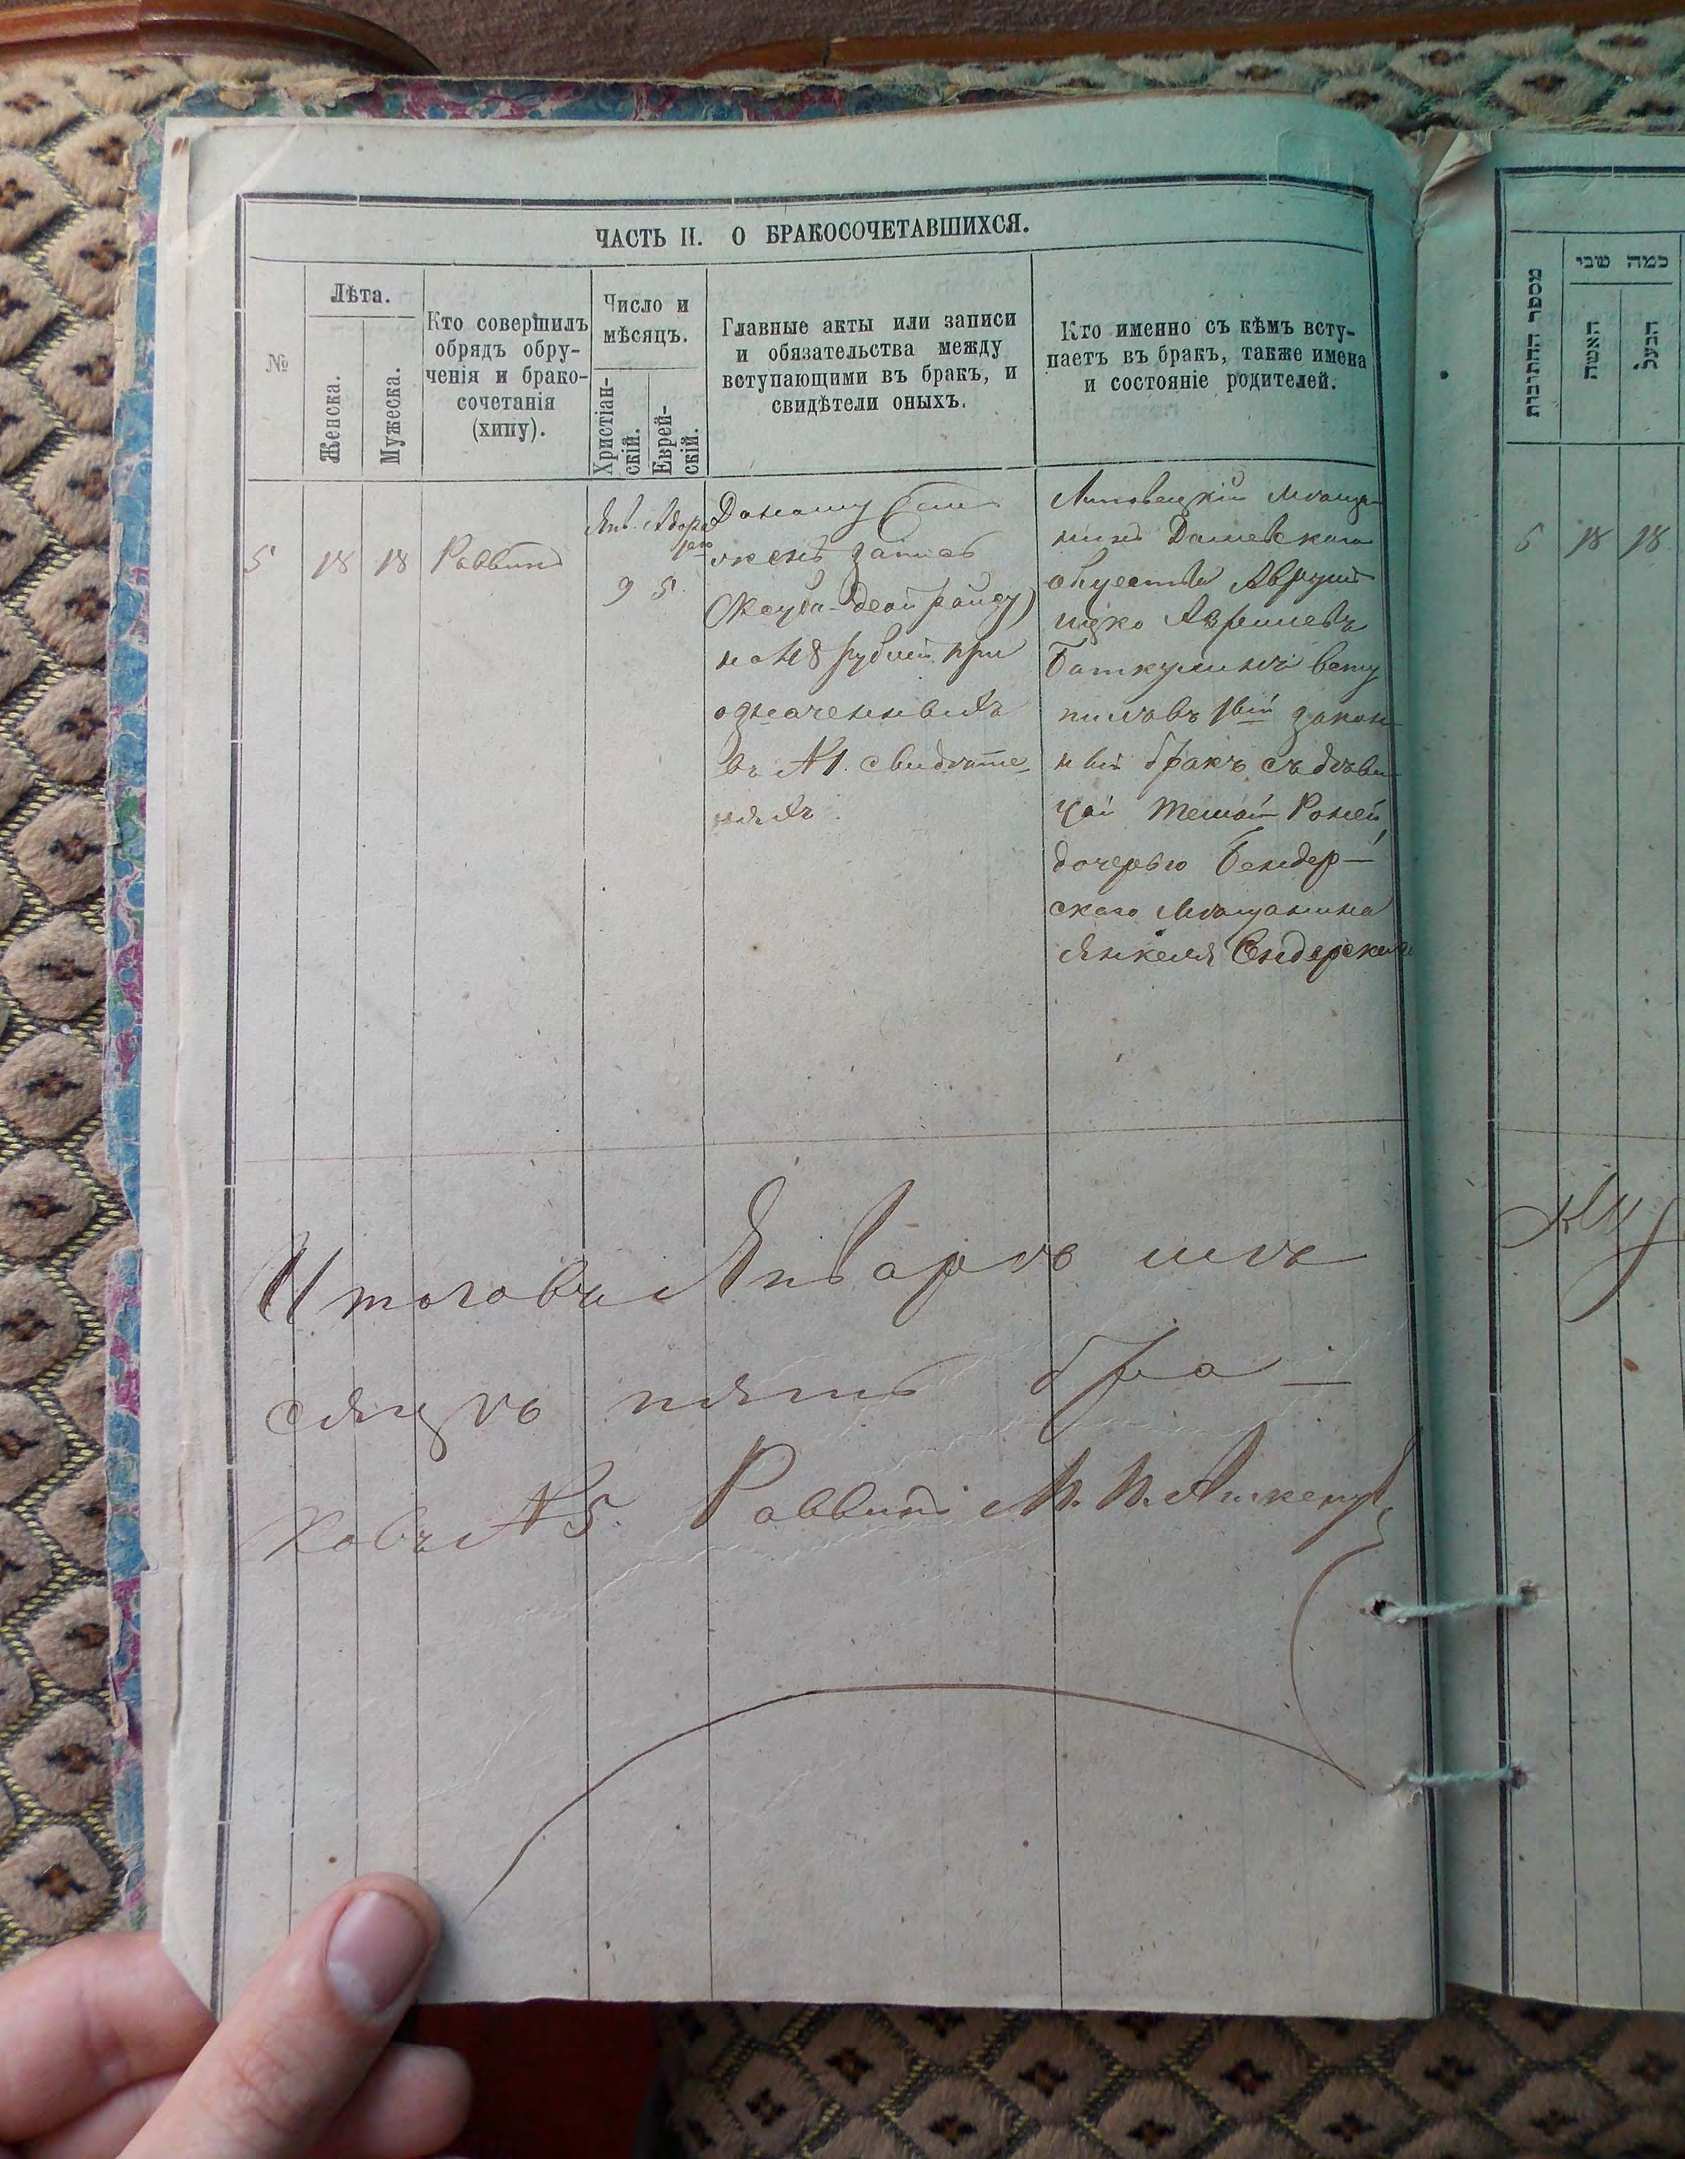 ЧАСТЬ II. О БРАКОСОЧЕТАВШИХСЯ.
№
Лѣта.
Женска.
Мужеска.
Кто совершилъ
обрядъ обру-
ченія и брако-
сочетанія
(хипу).
Число и
мѣсяцъ.
Христіан-
скій.
Еврей-
скій.
Главные акты или записи
и обязательства между
вступающими въ бракъ, и
свидѣтели оныхъ.
Кто именно съ кѣмъ всту-
паетъ въ бракъ, также имена
и состояніе родителей.
5
18
18
Раввинъ
Янв.
9
5
запись
на 48 рублей при
означенныхъ
въ №1. свидѣте-
ляхъ
Липовецкій мѣща-
нинъ Дашевскаго
общества
вступилъ въ 1вый закон-
ный бракъ съ дѣви-
цой
дочерью Бендер-
скаго мѣщанина
Янкеля Сендерскаго
Итого въ Январѣ мѣ
сяцѣ пять бра-
ковъ №5. Раввинъ М.
מספר החתונות
כמה שני
האשה
הבעל
5
18
18